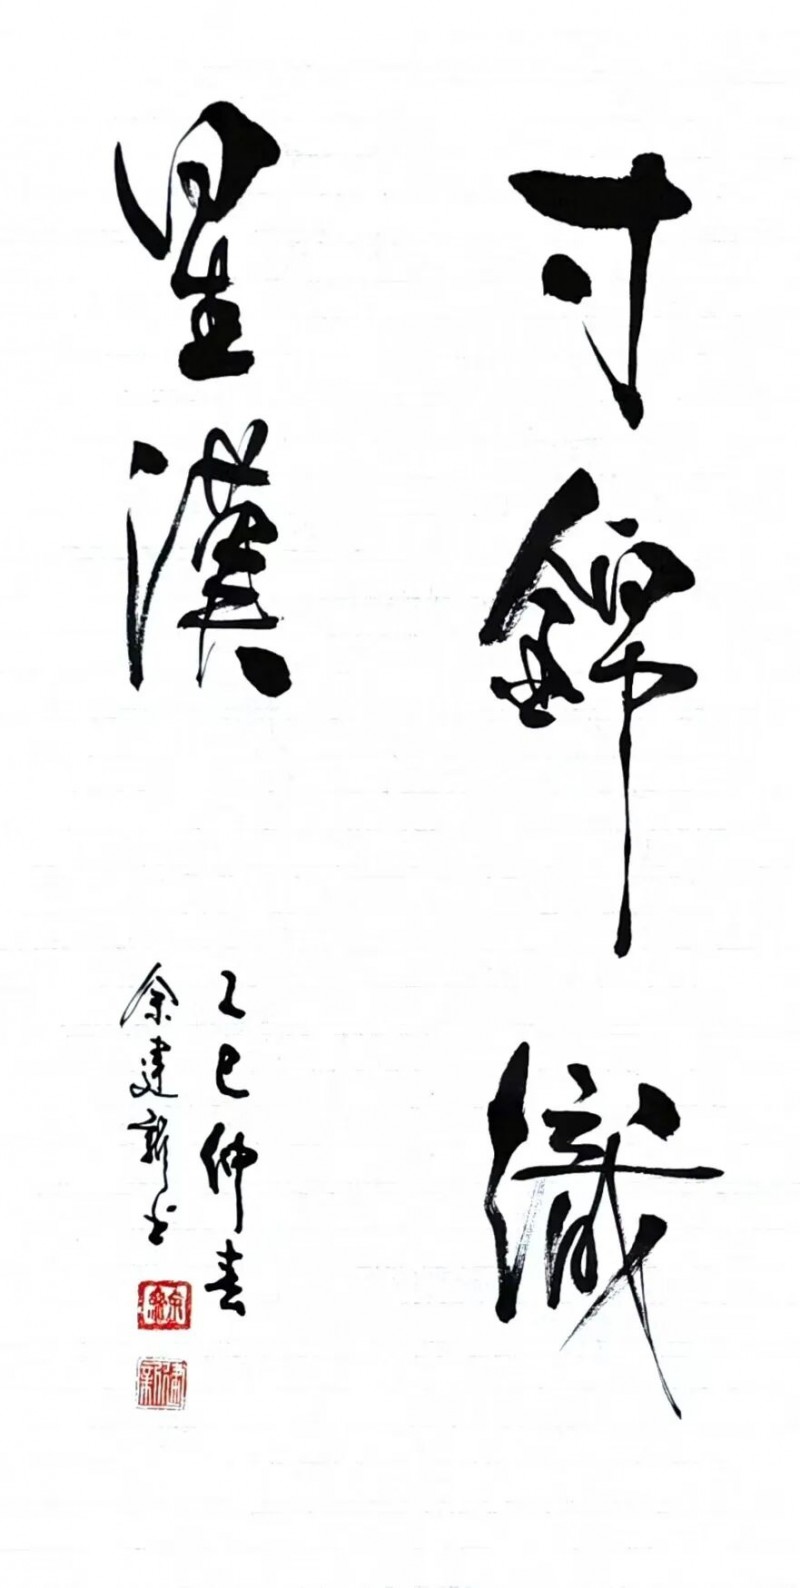 寸錦織
星漢
乙巳仲春
余建新书
建新